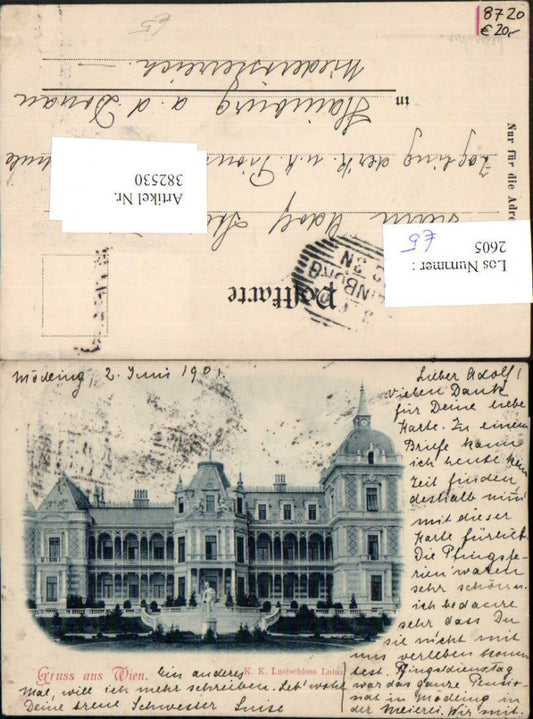 8720
€ 20,-
Niederösterreich
Hainburg a. d. Donau
in
Zögling der k. u. k. Pionier
Herrn Adolf
Nur für die Adre
Artikel Nr.
382530
Los Nummer :
2605
Postkarte
Mödling, 2. Juni 1901.
Lieber Adolf!
vielen Dank
für Deine liebe
Karte. Zu einem
Briefe kann
ich heute kein
Zeit finden
deshalb nimm
mit dieser
Karte fürlieb.
Die Pfingsfe-
rien waren
sehr schön.
ich bedaure
sehr dass Du
sie nicht mit
uns verleben konn
test. Pfingsdienstag
war das ganze Pensio-
nat in Mödling in
der Meierei. Wir mit.
Gruss aus Wien.
K. K. Lustschloss Lainz
Ein anderes
Mal, will ich mehr schreiben. Leb' wohl
Deine treue Schwester Luise